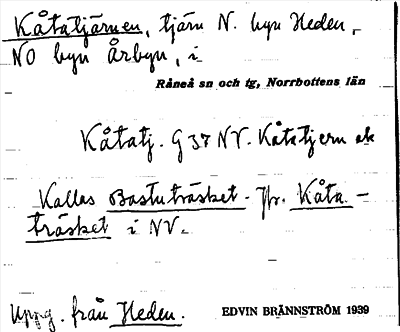 Kåtatjärnen, tjärn N. byn Heden,
NO byn Årbyn, i
Råneå sn och tg, Norrbottens län
Kåtatj. G 37 NV. Kåtatjern ek
Kallas Bastuträsket. Jfr. Kåta-
träsket i NV.
Uppg. från Heden.
EDVIN BRÄNNSTRÖM 1939